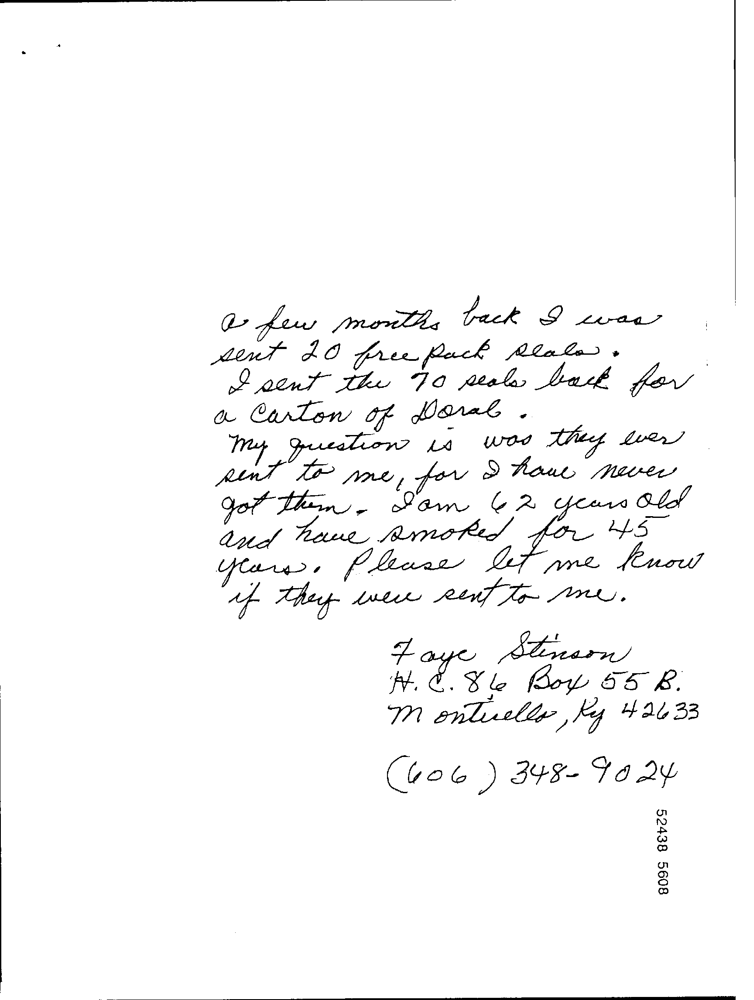 a few months back I was
sent 20 free pack seals.
I sent the 70 seals back for
a Carton of Doral.
My question is was they ever
sent to me, for I have never
got them. I am 62 years old
and have smoked for 45
years. Please let me know
if they were sent to me.
Faye Stinson
H.C. 86 Box 55 B.
Monticello, Ky 42633
(606) 348-9024
52438 5608